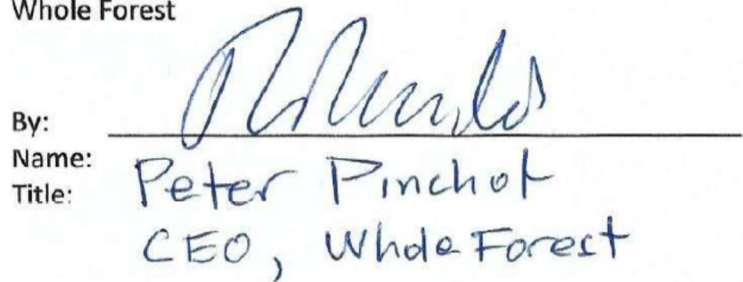 Whole Forest
By:
Name: Peter Pinchot
Title: CEO, Whole Forest